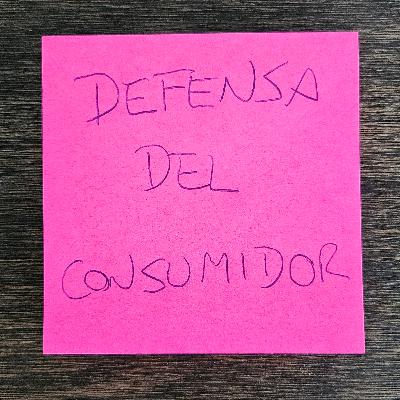 DEFENSA
DEL
CONSUMIDOR